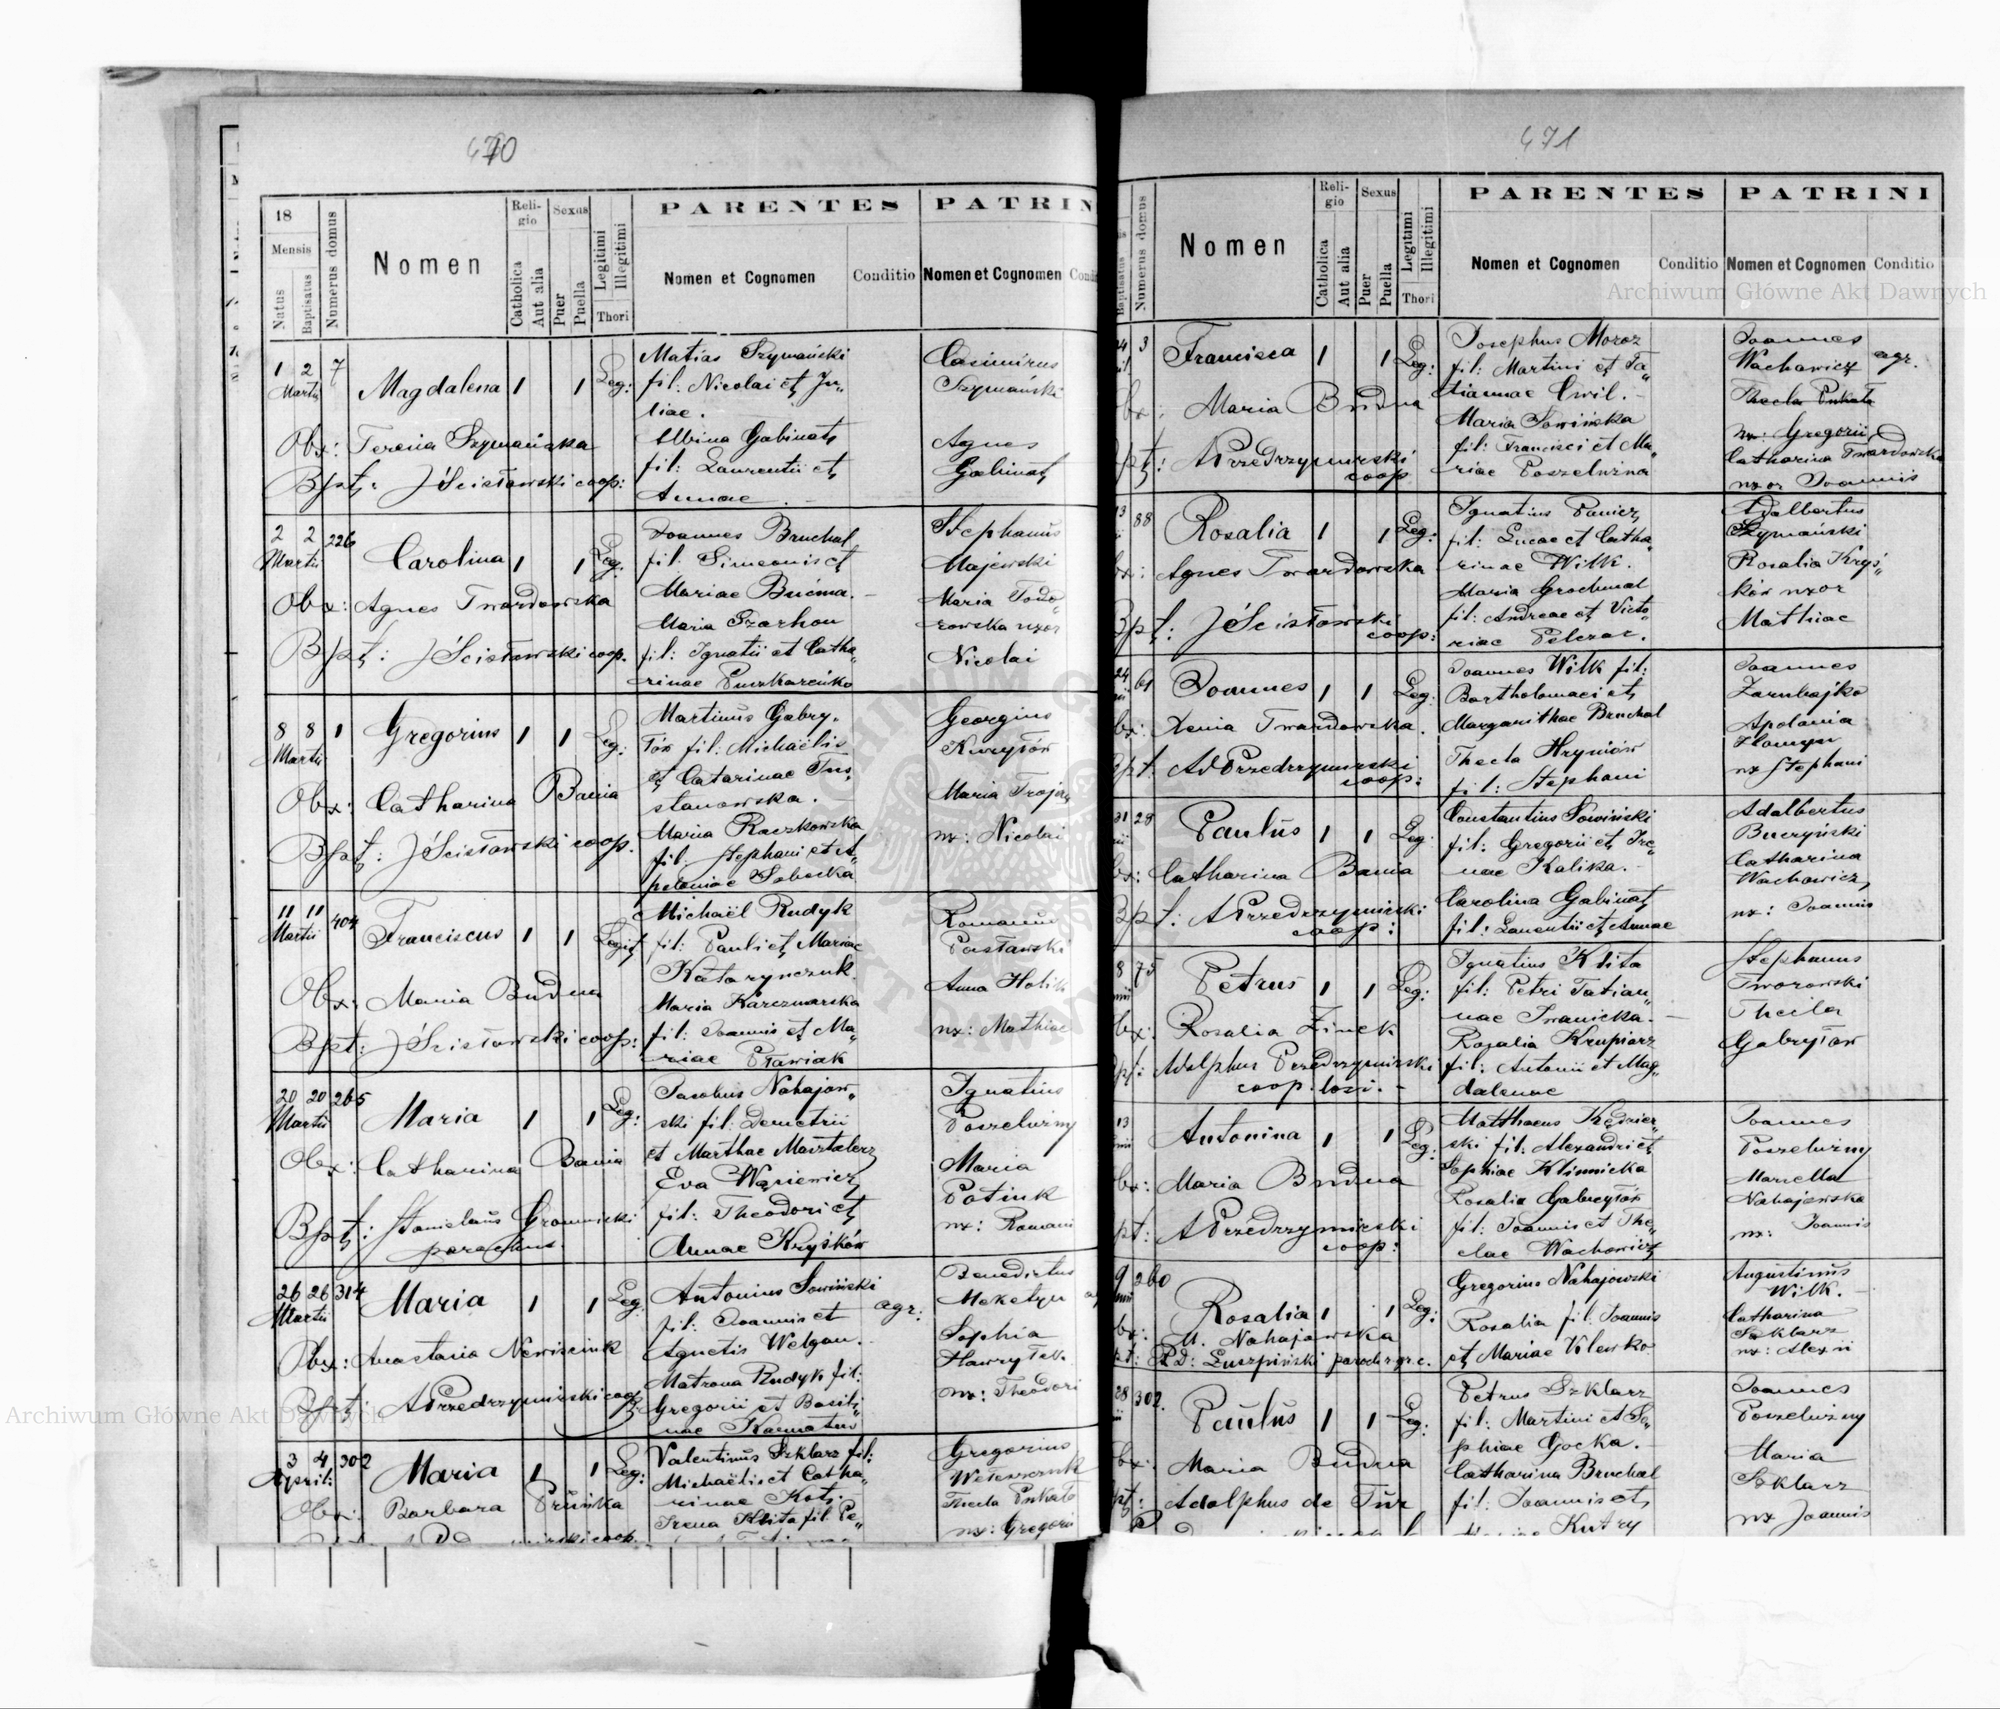 470
18
Mensis
Natus
Baptisatus
Numerus domus
Nomen
Religio
Catholica
Aut alia
Sexus
Puer
Puella
Legitimi
Illegitimi
Thori
PARENTES
Nomen et Cognomen
Conditio
PATRIN
Nomen et Cognomen
1 2 7
Martii
Magdalena 1 1 Leg:
Matias Szymański
fil: Nicolai et Ju„
liae.
Albina Gabinat
fil: Laurentii et
Annae
Casimirus
Szymański
Agnes
Gabinat
Obx: Teresia Szymańska
Bpt: J Ścisławski coop:
2 2 226
Martii
Carolina 1 1 Leg:
Joannes Bruchal
fil: Simeonis et
Mariae Bućma.
Maria Szarhon
fil: Ignatii et Catha„
rinae Puszkareńko
Stephanus
Majewski
Maria Todo„
rowska uxor
Nicolai
Obx: Agnes Twardowska
Bpt: J Ścisławski coop.
8 8 1
Martii
Gregorius 1 1 Leg:
Martinus Gabry„
łów fil: Michaëlis
et Catarinae Tus„
stanowska.
Maria Raczkowska
fil: Stephani et A„
poloniae Sobocka
Georgius
Kuryłów
Maria Trojan
ux: Nicolai
Obx: Catharina Bania
Bpt: J Ścisławski coop.
11 11 404
Martii
Franciscus 1 1 Legit
Michaël Rudyk
fil: Pauli et Mariae
Katarynczuk.
Maria Karczmarska
fil: Joannis et Ma„
riae Pławiak
Romanus
Pasławski
Anna Holik
ux: Mathiae
Obx: Maria Budna
Bpt: J Ścisławski coop:
20 20 265
Martii
Maria 1 1 Leg:
Jacobus Nahajow„
ski fil: Demetrii
et Marthae Marstalerz
Eva Wąsiewicz
fil: Theodori et
Annae Kryśków
Ignatius
Poszelużny
Maria
Potiuk
ux: Romani
Obx: Catharina Bania
Bpt: Stanislaus Gromnicki
parochus.
26 26 314
Martii
Maria 1 1 Leg:
Antonius Sowiński
fil: Joannis et
Agnetis Welgan.
Matrona Rudyk fil:
Gregorii et Basil„
nae
agr:
Benedictus
Meketyn
Sophia
Hawryluk
ux: Theodori
Obx: Anastasia
Bpt: A Przedrzymirski coop
3 4 302
Aprili:
Maria 1 1 Leg:
Valentinus Szklarz fil:
Michaëlis et Catha„
rinae Kot.
Irena Klita fil: Pe„
Gregorius
Thecla Pukało
ux: Gregorii
Obx: Barbara Pruńka
Archiwum Główne Akt Dawnych
471
Baptisatus
Numerus domus
Nomen
Religio
Catholica
Aut alia
Sexus
Puer
Puella
Legitimi
Illegitimi
Thori
PARENTES
Nomen et Cognomen
Conditio
PATRINI
Nomen et Cognomen
Conditio
Archiwum Główne Akt Dawnych
24 3
Francisca 1 1 Leg:
Josephus Moroz
fil: Martini et Ta„
tiannae Cwil.
Maria Sowińska
fil: Francisci et Ma„
riae Poszelużna
Joannes
Wachowicz agr.
Thecla Pukało
ux: Gregorii
Catharina Twardowska
uxor Joannis
bx: Maria Budna
pt: A Przedrzymirski
coop
13 88
Rosalia 1 1 Leg:
Ignatius Panicz
fil: Lucae et Catha„
rinae Wilk.
Maria Grochmal
fil: Andreae et Victo„
riae Pelczar.
Adalbertus
Szymański
Rosalia Kryś„
ków uxor
Mathiae
bx: Agnes Twardowska
Bpt: J Ścisławski
coop:
24 61
Joannes 1 1 Leg:
Joannes Wilk fil:
Bartholomaei et
Margarithae Bruchal
Thecla Hryniów
fil: Stephani
Joannes
Zarubajko
Apolonia
Homyn
ux Stephani
bx: Xenia Twardowska.
pt: Ad Przedrzymirski
coop:
31 28
Paulus 1 1 Leg
Constantius Sowiński
fil: Gregorii et Ire„
nae Kalika.
Carolina Gabinat
fil: Laurentii et Annae
Adalbertus
Buczyński
Catharina
Wachowicz
ux: Joannis
bx: Catharina Bania
Bpt: A Przedrzymirski
coop:
8 75
Petrus 1 1 Leg:
Ignatius Klita
fil: Petri Tatian„
nae Iwanicka.
Rosalia Krupiarz
fil: Antonii et Mag„
dalenae
Stephanus
Tworowski
Thecla
Gabryłow
bx: Rosalia Zinek
pt: Adolphus Przedrzymirski
coop. loci.
13
Antonina 1 1 Leg:
Matthaeus Kędzier„
ski fil: Alexandri et
Sophiae Klimnicka
Rosalia Gabryłów
fil: Joannis et The„
clae Wachowicz
Joannes
Poszelużny
Mariella
Nahajowska
ux: Joannis
bx: Maria Budna
pt: A Przedrzymirski
coop:
9 260
Rosalia 1 1 Leg:
Gregorius Nahajowski
Rosalia fil: Joannis
et Mariae Volewko
Augustinus
Wilk.
Catharina
Szklarz
ux: Alexii
bx: M. Nahajowska
pt: Rd: Łuszpiński paroch: gr. c.
28 302.
Paulus 1 1 Leg:
Petrus Szklarz
fil: Martini et So„
phiae Gocka.
Catharina Bruchal
fil: Joannis et
Kutry
Joannes
Poszelużny
Maria
Szklarz
ux Joannis
bx: Maria Budna
pt: Adolphus de Tur